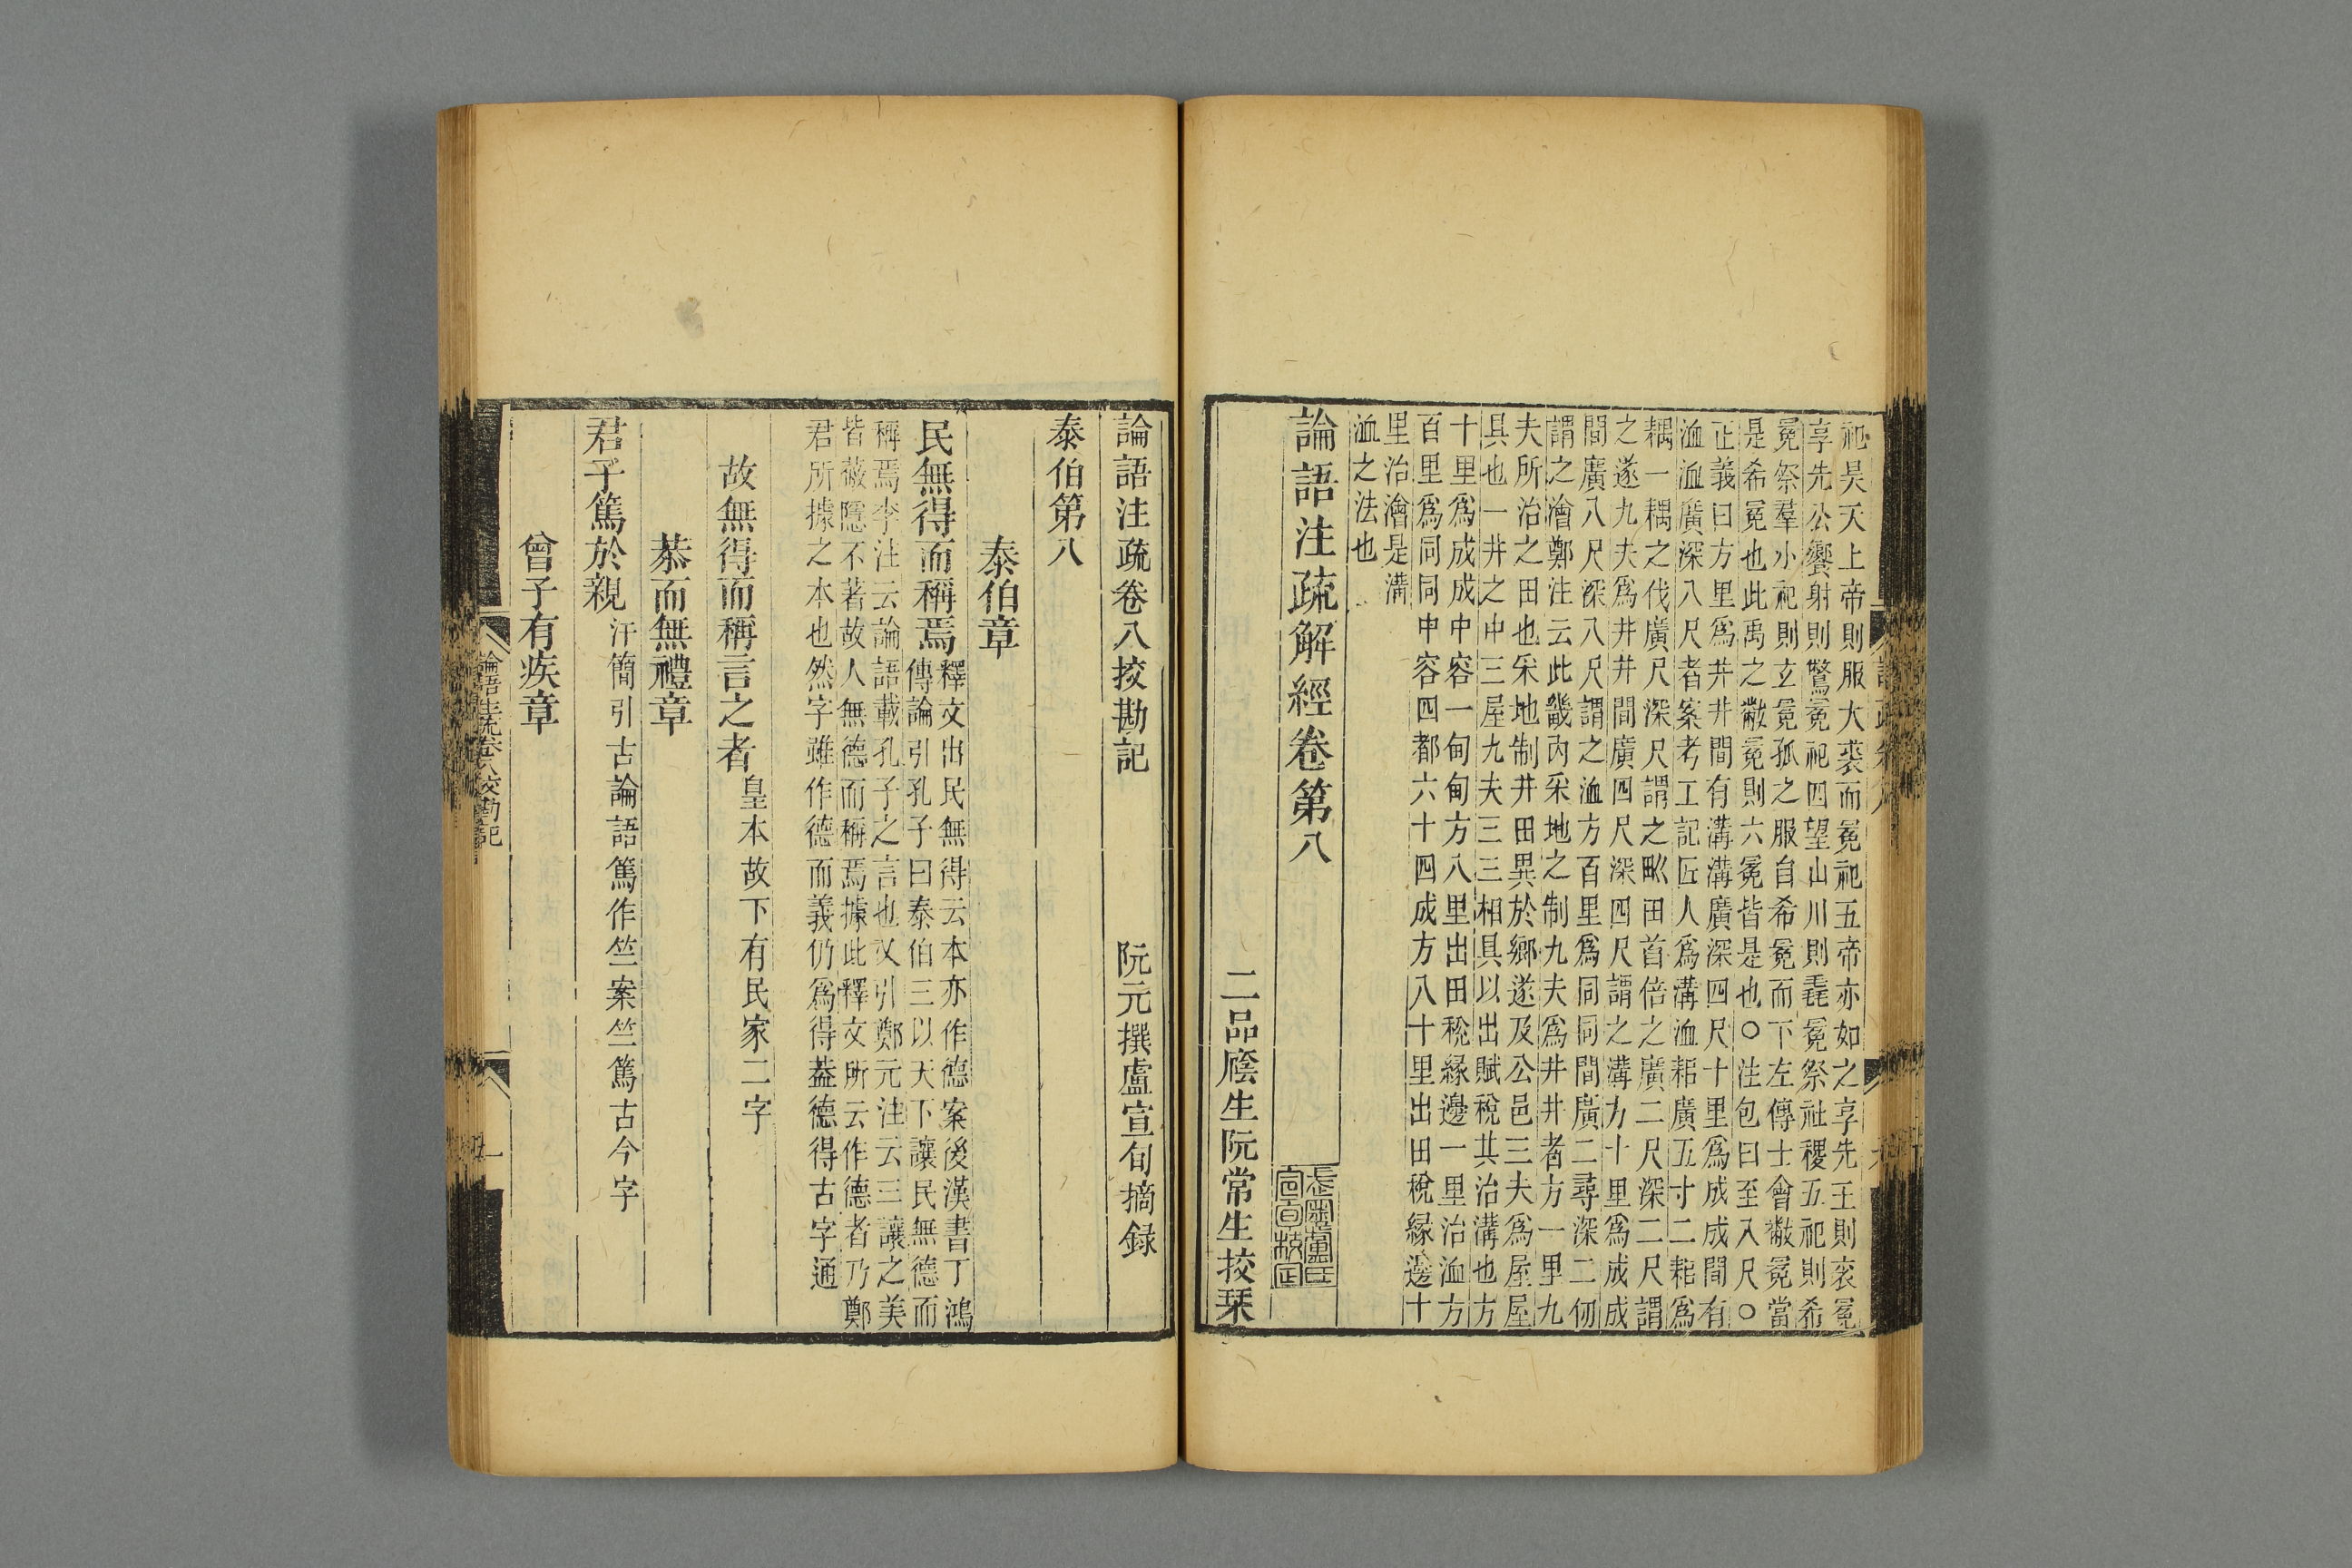 祀昊天上帝則服大裘而冕祀五帝亦如之享先王則衮冕
享先公饗射則鷩冕祀四望山川則毳冕祭社稷五祀則希
冕祭羣小祀則玄冕孤之服自希冕而下左傳士會黻冕當
是希冕也此禹之黻冕則六冕皆是也○注包曰至八尺○
正義曰方里爲井井間有溝溝廣深四尺十里爲成成間有
洫洫廣深八尺者案考工記匠人爲溝洫耜廣五寸二耜爲
耦一耦之伐廣尺深尺謂之𤰝田首倍之廣二尺深二尺謂
之遂九夫爲井井間廣四尺深四尺謂之溝方十里爲成成
間廣八尺深八尺謂之洫方百里爲同同間廣二尋深二仞
謂之澮鄭注云此畿內采地之制九夫爲井井者方一里九
夫所治之田也采地制井田異於鄉遂及公邑三夫爲屋屋
具也一井之中三屋九夫三三相具以出賦稅共治溝也方
十里爲成成中容一甸甸方八里出田稅緣邊一里治洫方
百里爲同同中容四都六十四成方八十里出田稅緣邊十
里治澮是溝
洫之法也
論語注疏解經卷第八
二品廕生阮常生挍栞
論語注疏卷八挍勘記
阮元撰盧宣旬摘録
泰伯第八
泰伯章
民無得而稱焉
釋文出民無得云本亦作德案後漢書丁鴻
傳論引孔子曰泰伯三以天下讓民無德而
稱焉李注云論語載孔子之言也又引鄭元注云三讓之美
皆蔽隱不著故人無德而稱焉據此釋文所云作德者乃鄭
君所據之本也然字雖作德而義仍爲得葢德得古字通
故無得而稱言之者
皇本故下有民家二字
恭而無禮章
君子篤於親
汗簡引古論語篤作竺案竺篤古今字
曾子有疾章
論語注疏卷八挍勘記
一